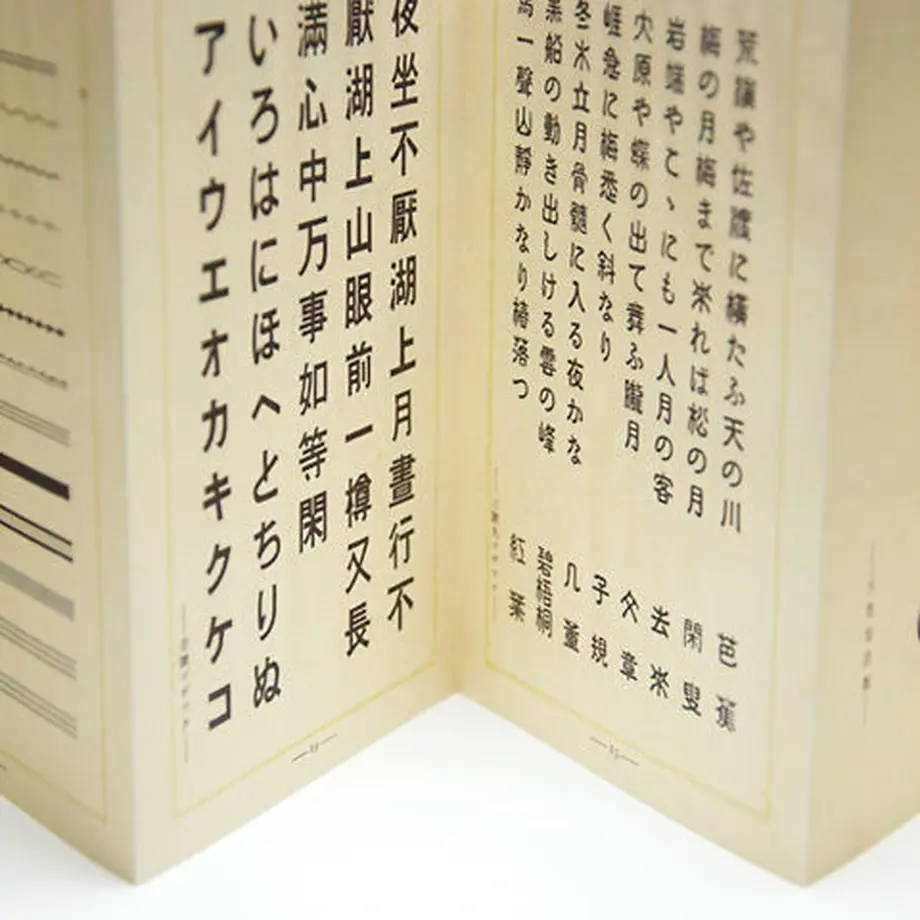 荒海や佐渡に橫たふ天の川 芭蕉
梅の月梅まで來れば松の月 閑叟
岩端やこゝにも一人月の客 去來
大原や蝶の出て舞ふ朧月 丈草
崕急に梅悉く斜なり 子規
冬木立月骨髓に入る夜かな 几董
黒船の動き出しける雲の峰 碧梧桐
馬一聲山靜かなり椿落つ 紅葉
夜坐不厭湖上月晝行不
厭湖上山眼前一樽又長
滿心中万事如等閑
いろはにほへとちりぬ
アイウエオカキクケコ